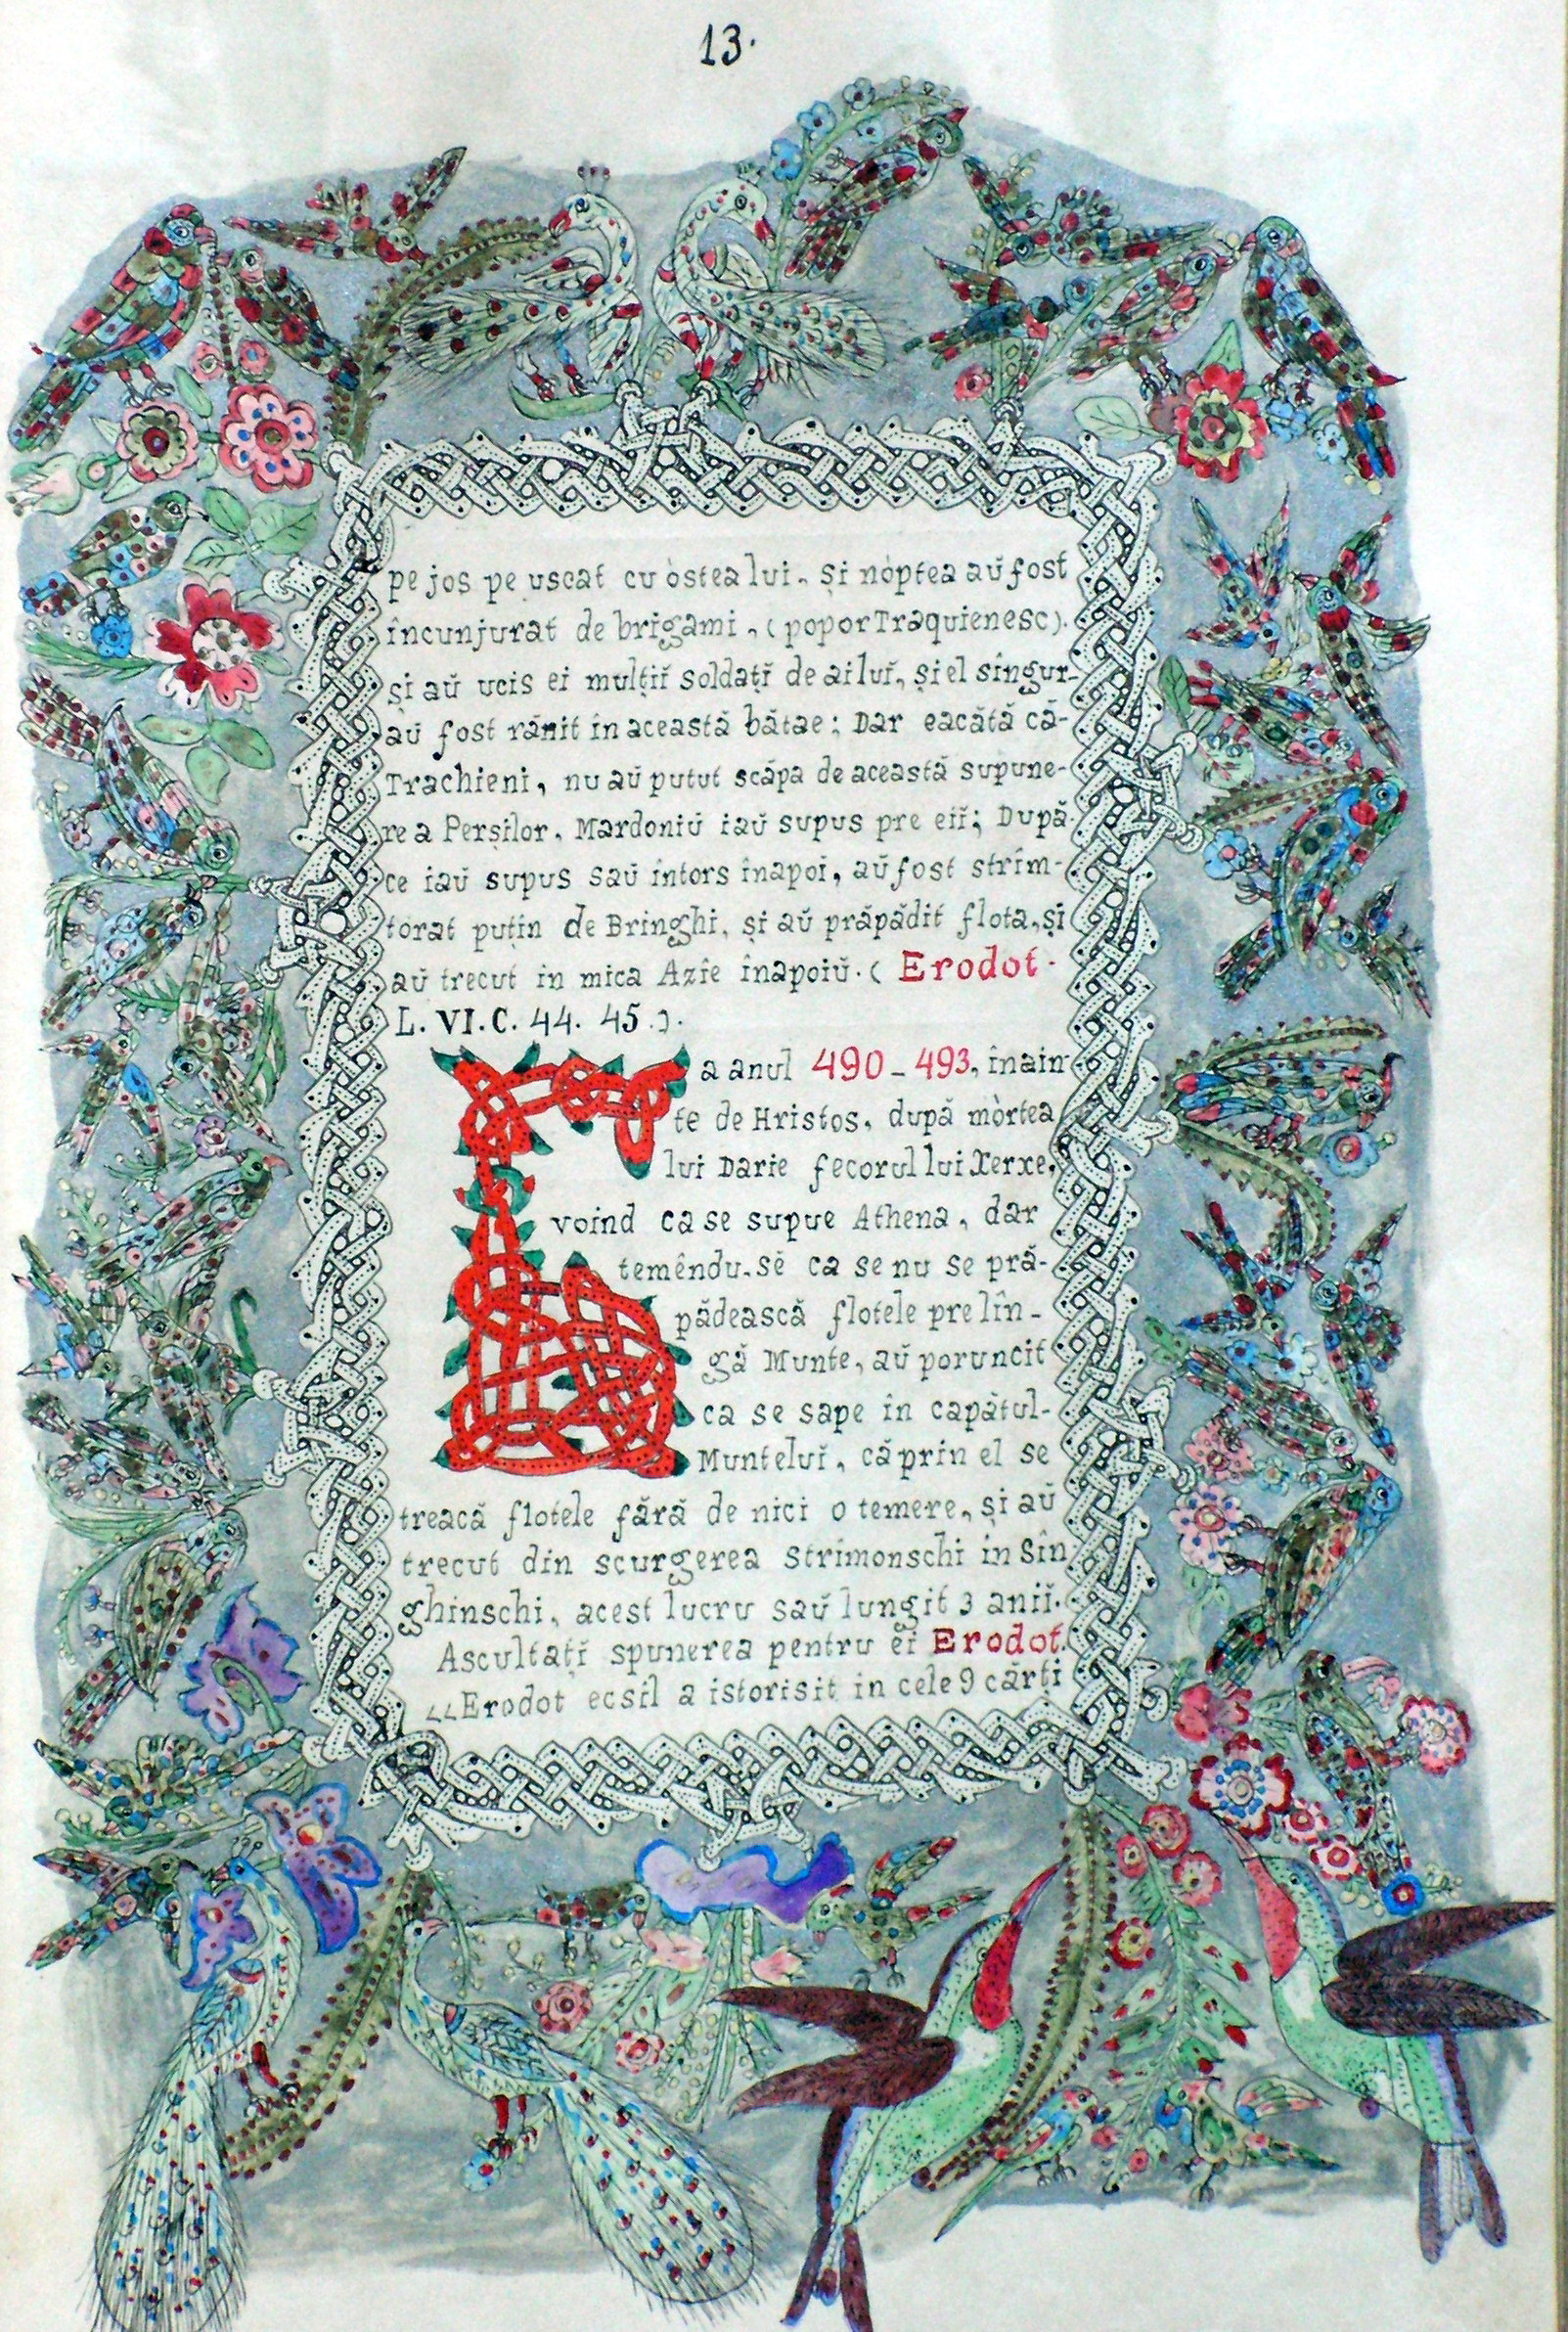 13.
pe jos pe uscat cu òstea lui, și nòptea aŭ fost
încunjurat de brigami, (popor Traquienesc).
și aŭ ucis ei mulțiĭ soldațĭ de ai luĭ, și el sîngur-
aŭ fost rănit in această bătae; Dar eacătă că-
Trachieni, nu aŭ putut scăpa de această supune-
re a Perșilor, Mardoniŭ iaŭ supus pre eiĭ; După
ce iaŭ supus saŭ intors înapoi, aŭ fost strîm-
torat puțin de Bringhi, și aŭ prăpădit flota, și
aŭ trecut in mica Azîe înapoiŭ. ( Erodot.
L. VI. C. 44. 45.).
La anul 490 - 493, înain
te de Hristos, după mòrtea
lui Darie fecorul lui Xerxe,
voind ca se supue Athena, dar
temêndu-sĕ ca se nu se pră-
pădească flotele pre lîn-
gă Munte, aŭ poruncit
ca se sape în capătul-
Munteluĭ, că prin el se
treacă flotele fără de nici o temere, și aŭ
trecut din scurgerea Strimonschi in Sîn
ghinschi, acest lucru saŭ lungit 3 aniĭ.
Ascultațĭ spunerea pentru ei Erodot.
„Erodot ecsil a istorisit in cele 9 cărți